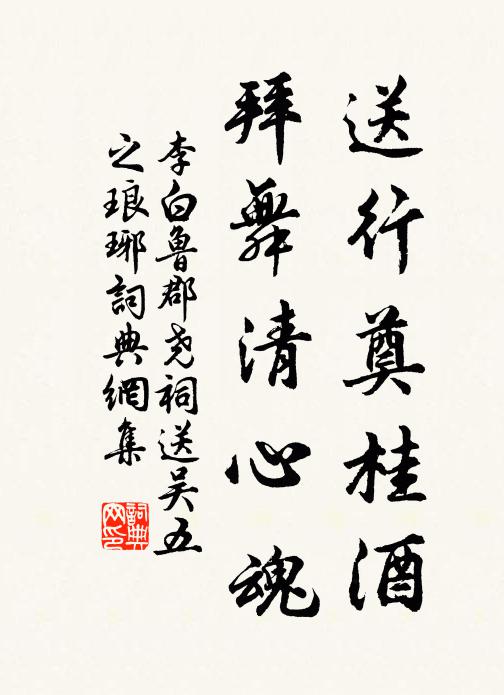 送行奠桂酒
拜舞清心魂
李白魯郡尧祠送吴五
之琅琊詞典網集
詞典网印